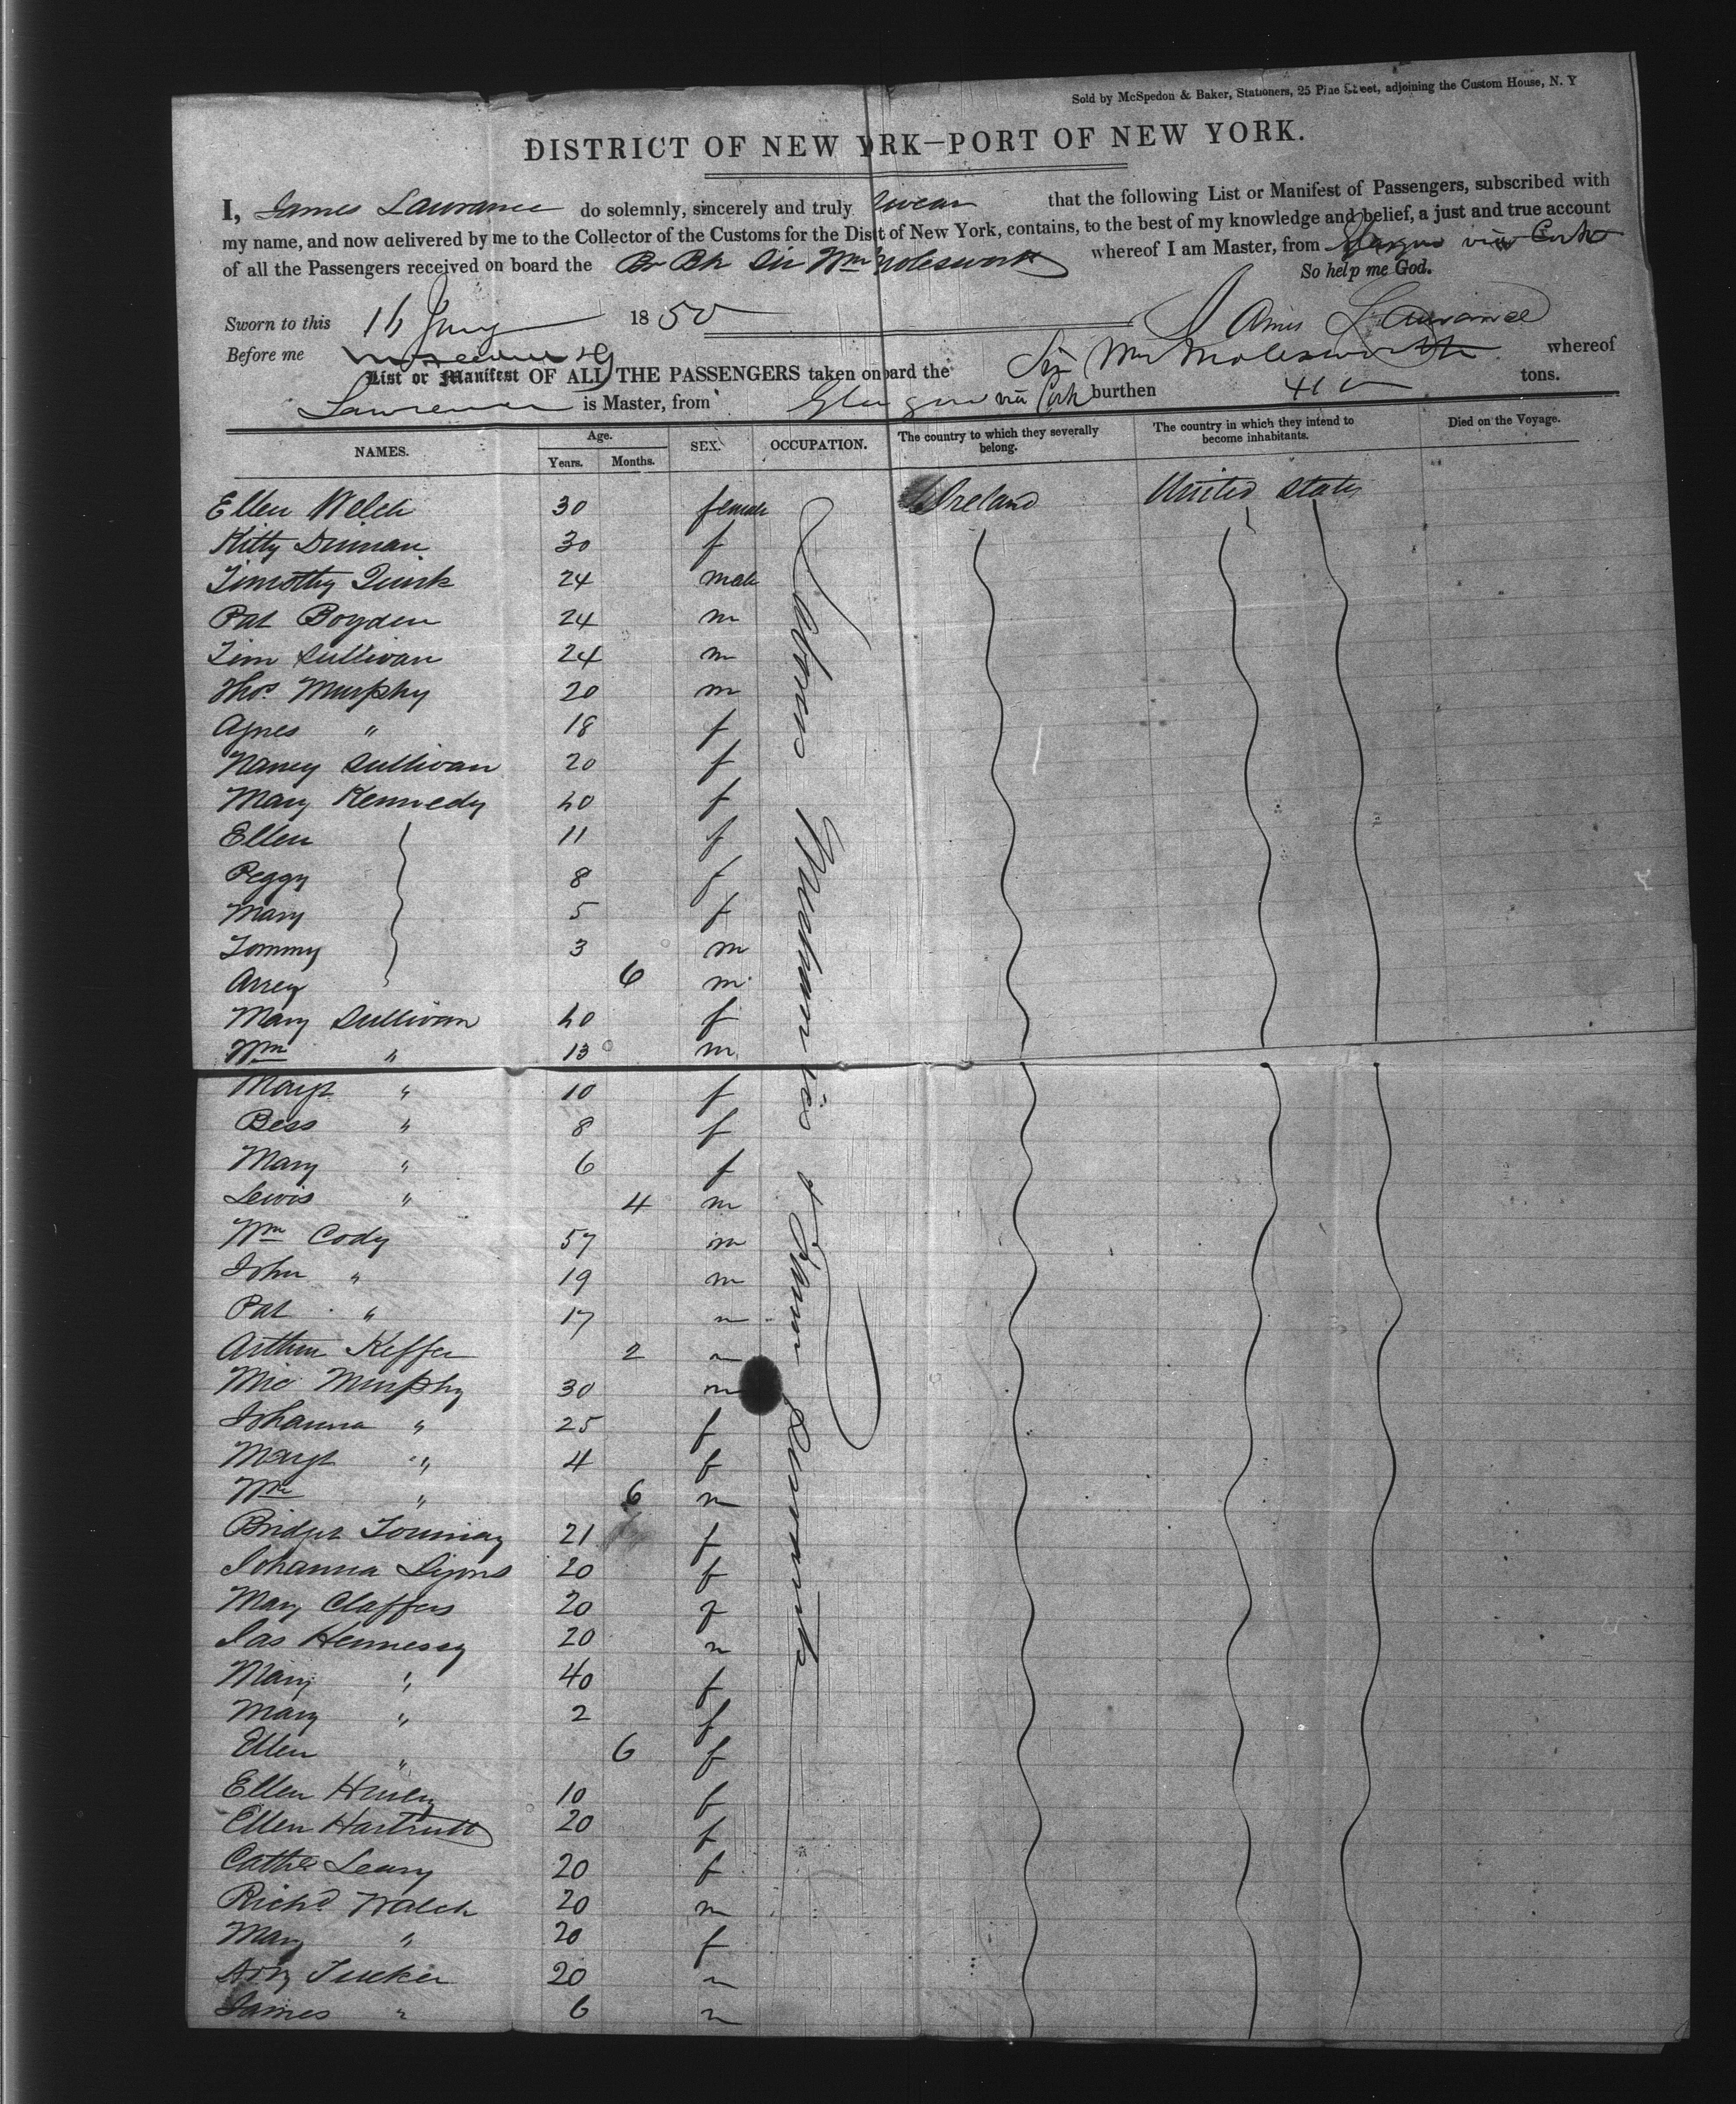 Sold by McSpedon & Baker, Stationers, 25 Pine Street, adjoining the Custom House, N. Y
DISTRICT OF NEW YRK—PORT OF NEW YORK.
I, James Lawrance do solemnly, sincerely and truly swear that the following List or Manifest of Passengers, subscribed with
my name, and now delivered by me to the Collector of the Customs for the Dist t of New York, contains, to the best of my knowledge and belief, a just and true account
of all the Passengers received on board the Br Bk Sir Wm Molesworth whereof I am Master, from Glasgow via Cork
So help me God.
Sworn to this 16 1850
James Lawrance
Before me
List or Manifest OF ALL THE PASSENGERS taken on board the Sir Wm Molesworth whereof
Lawrence is Master, from Glasgow via Cork burthen tons.
NAMES. Age. Years. Months. SEX. OCCUPATION. The country to which they severally belong. The country in which they intend to become inhabitants. Died on the Voyage.
Ellen Welch 30 female Ireland United States
Kitty 30 f
Timothy Quirk 24 male
Pat Boyden 24 m
Tim Sullivan 24 m
Thos. Murphy 20 m
Agnes " 18 f
Nancy Sullivan 20 f
Mary Kennedy 40 f
Ellen 11 f
Peggy 8 f
Mary 5 f
Tommy 3 m
6 m
Mary Sullivan 40 f
Wm " 13 m
Margt " 10 f
Bess " 8 f
Mary " 6 f
Lewis " 4 m
Wm Cody 57 m
John " 19 m
Pat " 17 m
Arthur Keffer 2 m
Mic Murphy 30 m
Johanna " 25 f
Margt " 4 f
Wm " 6 m
Bridget 21 f
Johanna Lyons 20 f
Mary Claffers 20 f
Jas Hennessy 20 m
Mary " 40 f
Mary " 2 f
Ellen " 6 f
Ellen 10 f
Ellen 20 f
Cathe Leary 20 f
Richd Walch 20 m
Mary " 20 f
Tucker 20 m
James " 6 m
Labourers Mechanics & Servants